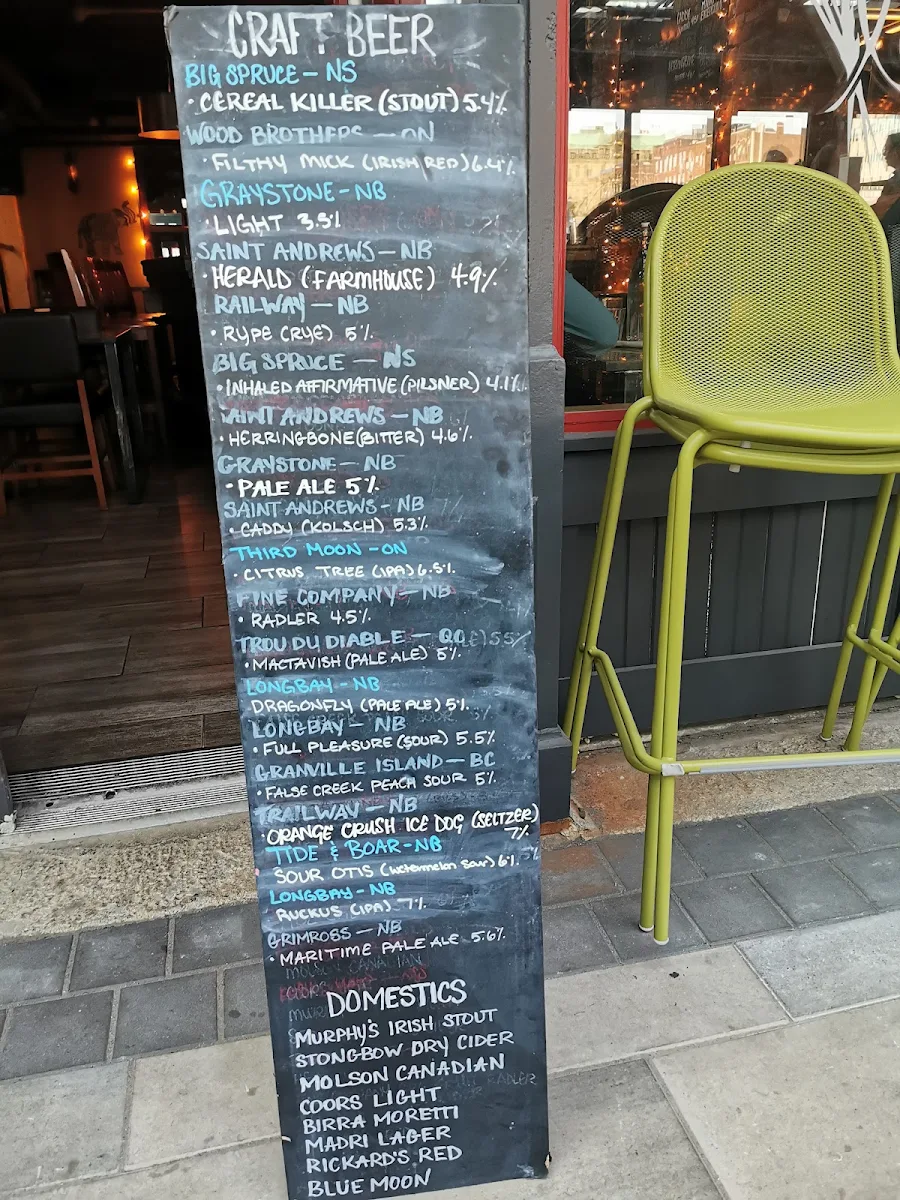 CRAFT BEER
BIG SPRUCE - NS
• CEREAL KILLER (STOUT) 5.4%
WOOD BROTHERS - ON
• FILTHY MICK (IRISH RED) 6.4%
GRAYSTONE - NB
• LIGHT 3.5%
SAINT ANDREWS - NB
• HERALD (FARMHOUSE) 4.9%
RAILWAY - NB
• RYPE (RYE) 5%
BIG SPRUCE - NS
• INHALED AFFIRMATIVE (PILSNER) 4.1%
SAINT ANDREWS - NB
• HERRINGBONE (BITTER) 4.6%
GRAYSTONE - NB
• PALE ALE 5%
SAINT ANDREWS - NB
• CADDY (KOLSCH) 5.3%
THIRD MOON - ON
• CITRUS TREE (IPA) 6.5%
FINE COMPANY - NB
• RADLER 4.5%
TROU DU DIABLE - QC
• MACTAVISH (PALE ALE) 5%
LONGBAY - NB
DRAGONFLY (PALE ALE) 5%
LONGBAY - NB
• FULL PLEASURE (SOUR) 5.5%
GRANVILLE ISLAND - BC
• FALSE CREEK PEACH SOUR 5%
RAILWAY - NB
• ORANGE CRUSH ICE DOG (SELTZER)
7%
TIDE & BOAR - NB
SOUR OTIS (watermelon sour) 6%
LONGBAY - NB
RUCKUS (IPA) 7%
GRIMROSS - NB
• MARITIME PALE ALE 5.6%
MOLSON CANADIAN
DOMESTICS
MURPHY'S IRISH STOUT
STONGBOW DRY CIDER
MOLSON CANADIAN
COORS LIGHT
BIRRA MORETTI
MADRI LAGER
RICKARD'S RED
BLUE MOON